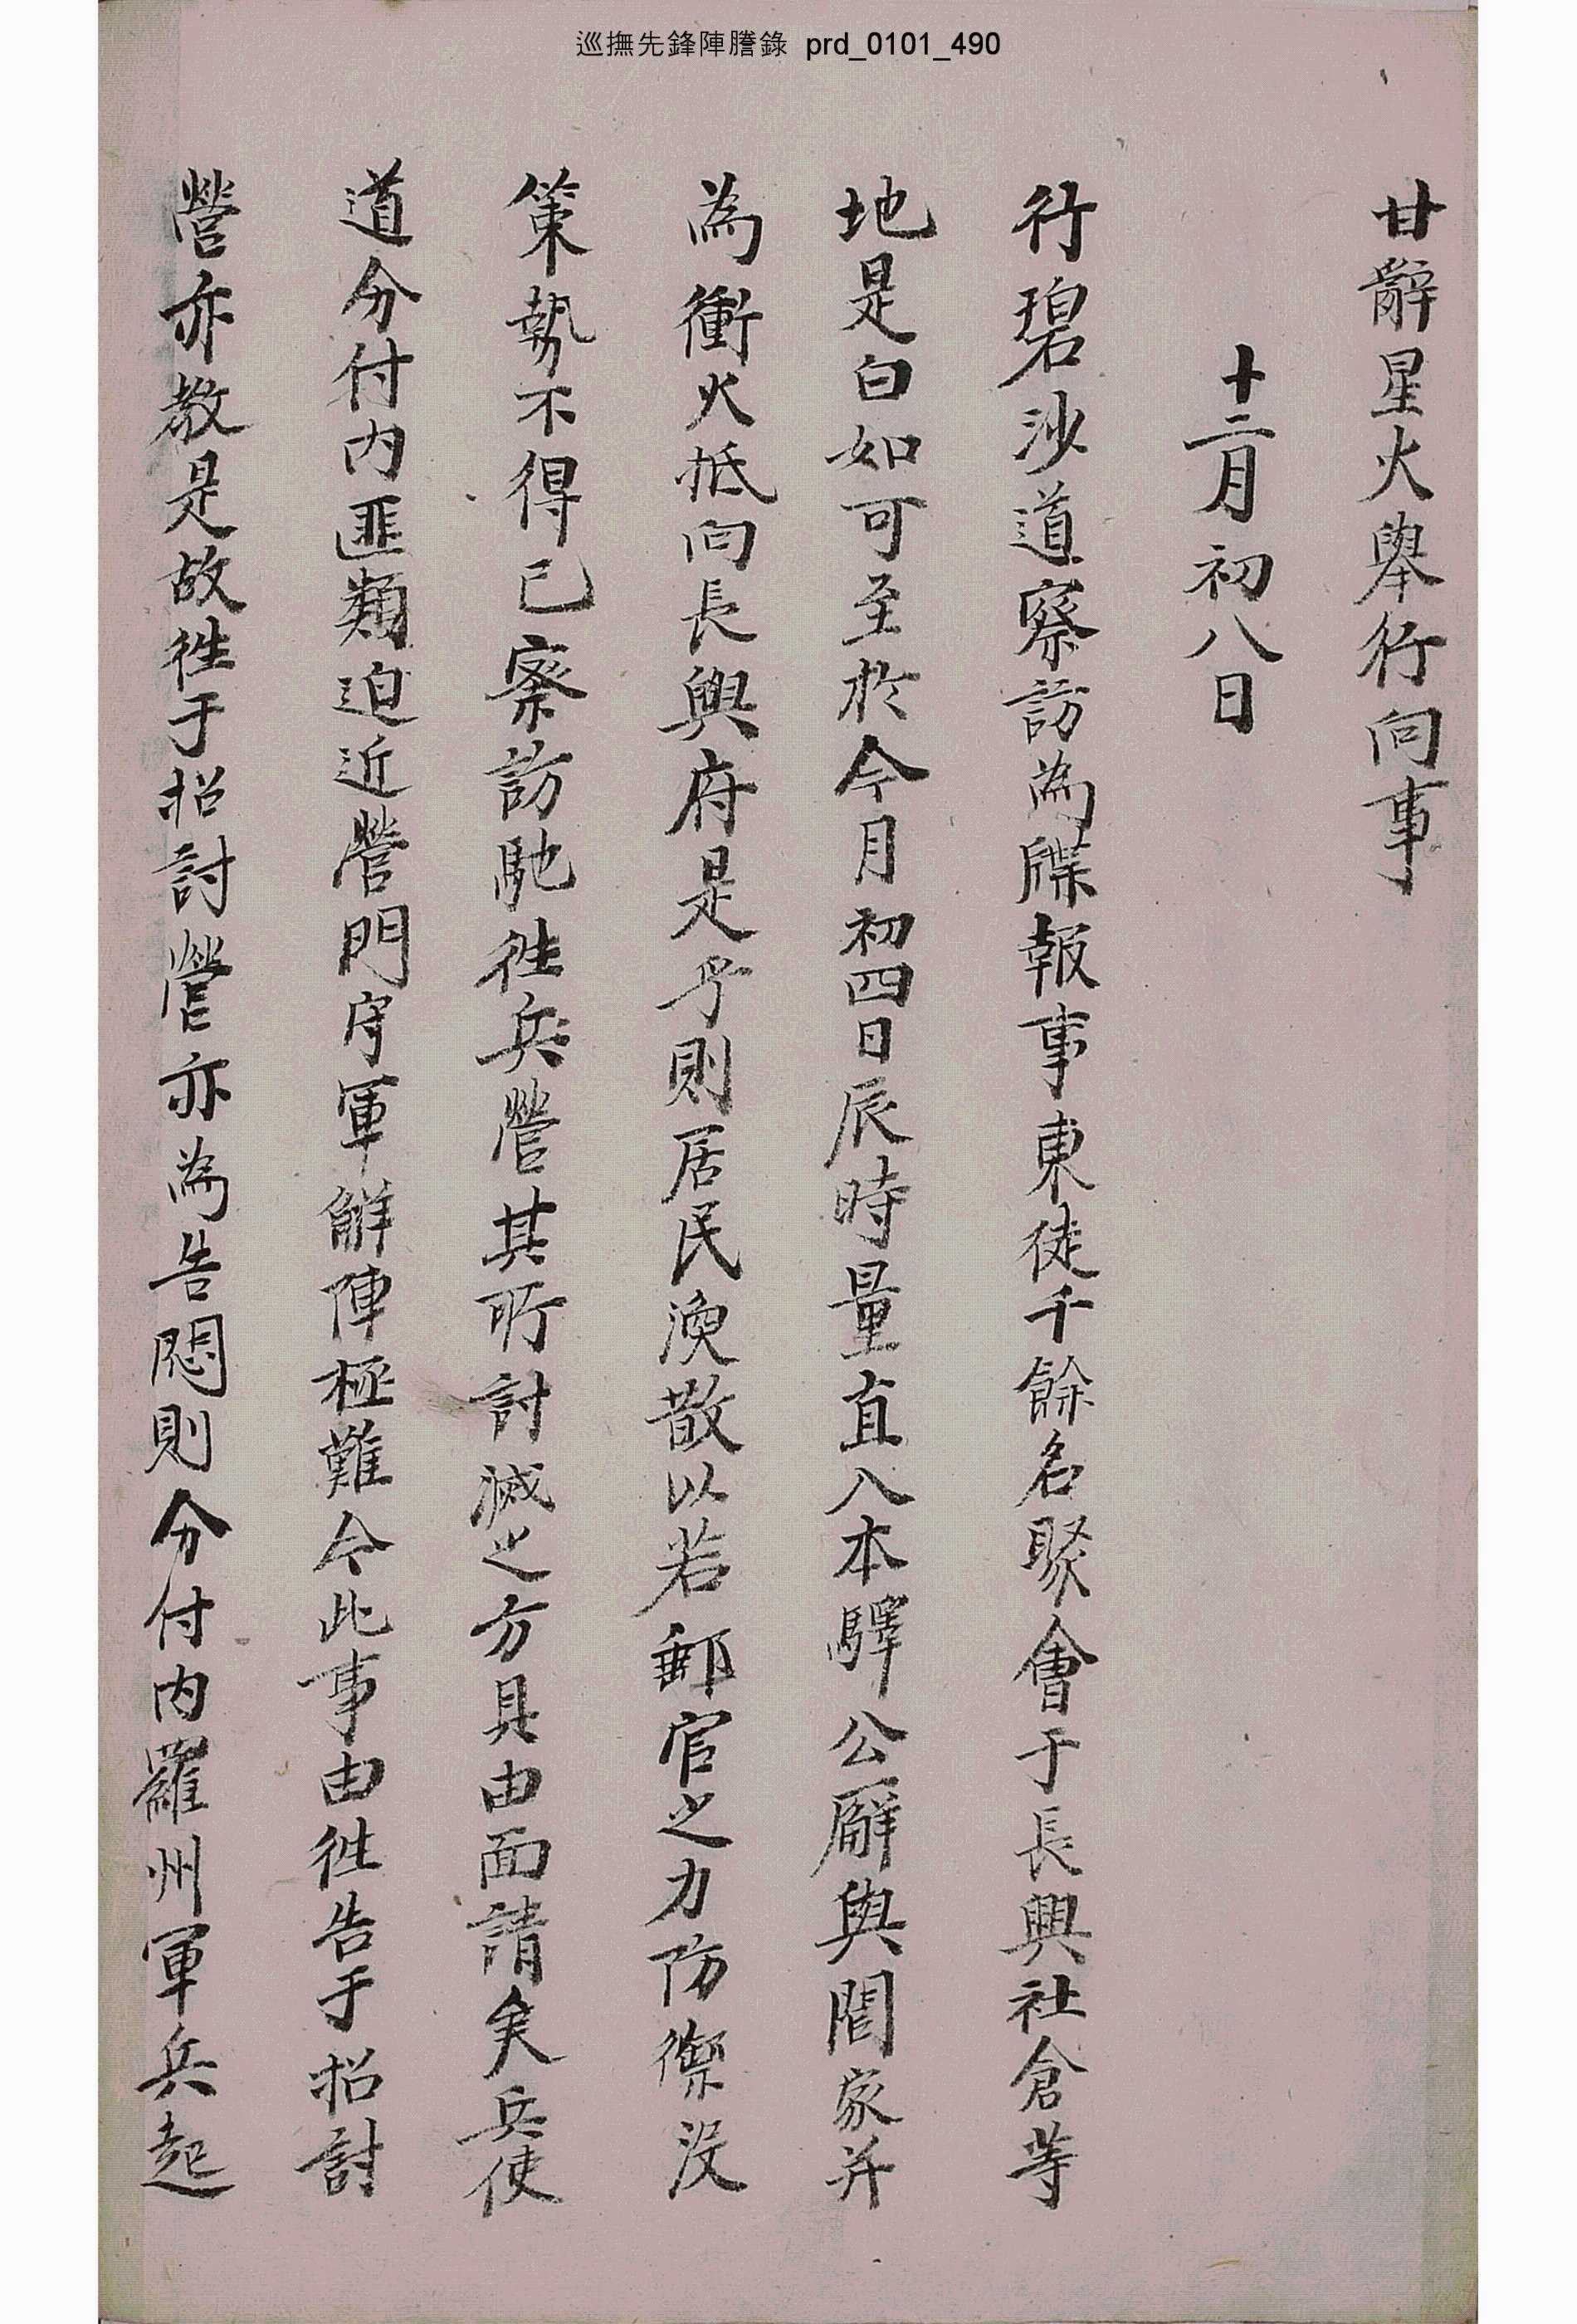 巡撫先鋒陣謄錄 prd_0101_490
甘辭星火舉行向事
十二月初八日
行碧沙道察訪為牒報事東徒千餘名聚會于長興社倉等
地是白如可至於今月初四日辰時量直入本驛公廨與閭家并
為衝火抵向長興府是乎則居民渙散以若郵官之力防禦沒
策勢不得已察訪馳往兵營其所討滅之方具由面請矣兵使
道分付內匪類迫近營門守軍解陣極難今此事由往告于招討
營亦敎是故往于招討營亦為告悶則分付內羅州軍兵起